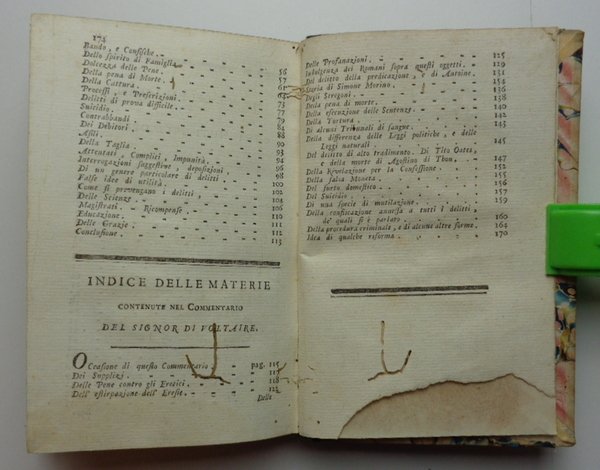 174
Bando, e Confische.
Dello spirito di Famiglia. 56
Dolcezza delle Pene. 57
Della pena di Morte.
Della Cattura.
Processi, e Prescrizioni.
Delitti di prova difficile. 73
Suicidio. 77
Contrabbandi 79
Dei Debitori. 84
Asili. 88
Della Taglia. 90
Attentati, Complici, Impunità. 93
Interrogazioni suggestive, deposizioni 94
Di un genere particolare di delitti. 98
False idee di utilità. 100
Come si prevengano i delitti, 102
Delle Scienze. 104
Magistrati. Ricompense. 106
Educazione. 109
Delle Grazie. 110
Conclusione. 111
113
INDICE DELLE MATERIE
CONTENUTE NEL COMMENTARIO
DEL SIGNOR DI VOLTAIRE.
OCcasione di questo Commentario pag. 115
Dei Supplizj 117
Delle Pene contro gli Eretici 118
Dell' estirpazione dell' Eresie. 122
Delle
Delle Profanazioni. 125
Indulgenza dei Romani sopra questi oggetti. 129
Del delitto della predicazione, e di Antoine. 131
Storia di Simone Morino. 134
Degli Stregoni. 136
Della pena di morte. 138
Della esecuzione delle Sentenze. 140
Della Tortura. 142
Di alcuni Tribunali di sangue. 143
Della differenza delle Leggi politiche, e delle
Leggi naturali. 145
Del delitto di alto tradimento. Di Tito Oates,
e della morte di Agostino di Thou. 147
Della Rivelazione per la Confessione. 152
Della falsa Moneta. 155
Del furto domestico. 156
Del Suicidio. 157
Di una specie di mutilazione. 159
Della confiscazione annessa a tutti i delitti,
de' quali si è parlato. 160
Della procedura criminale, e di alcune altre forme. 164
Idea di qualche riforma. 170